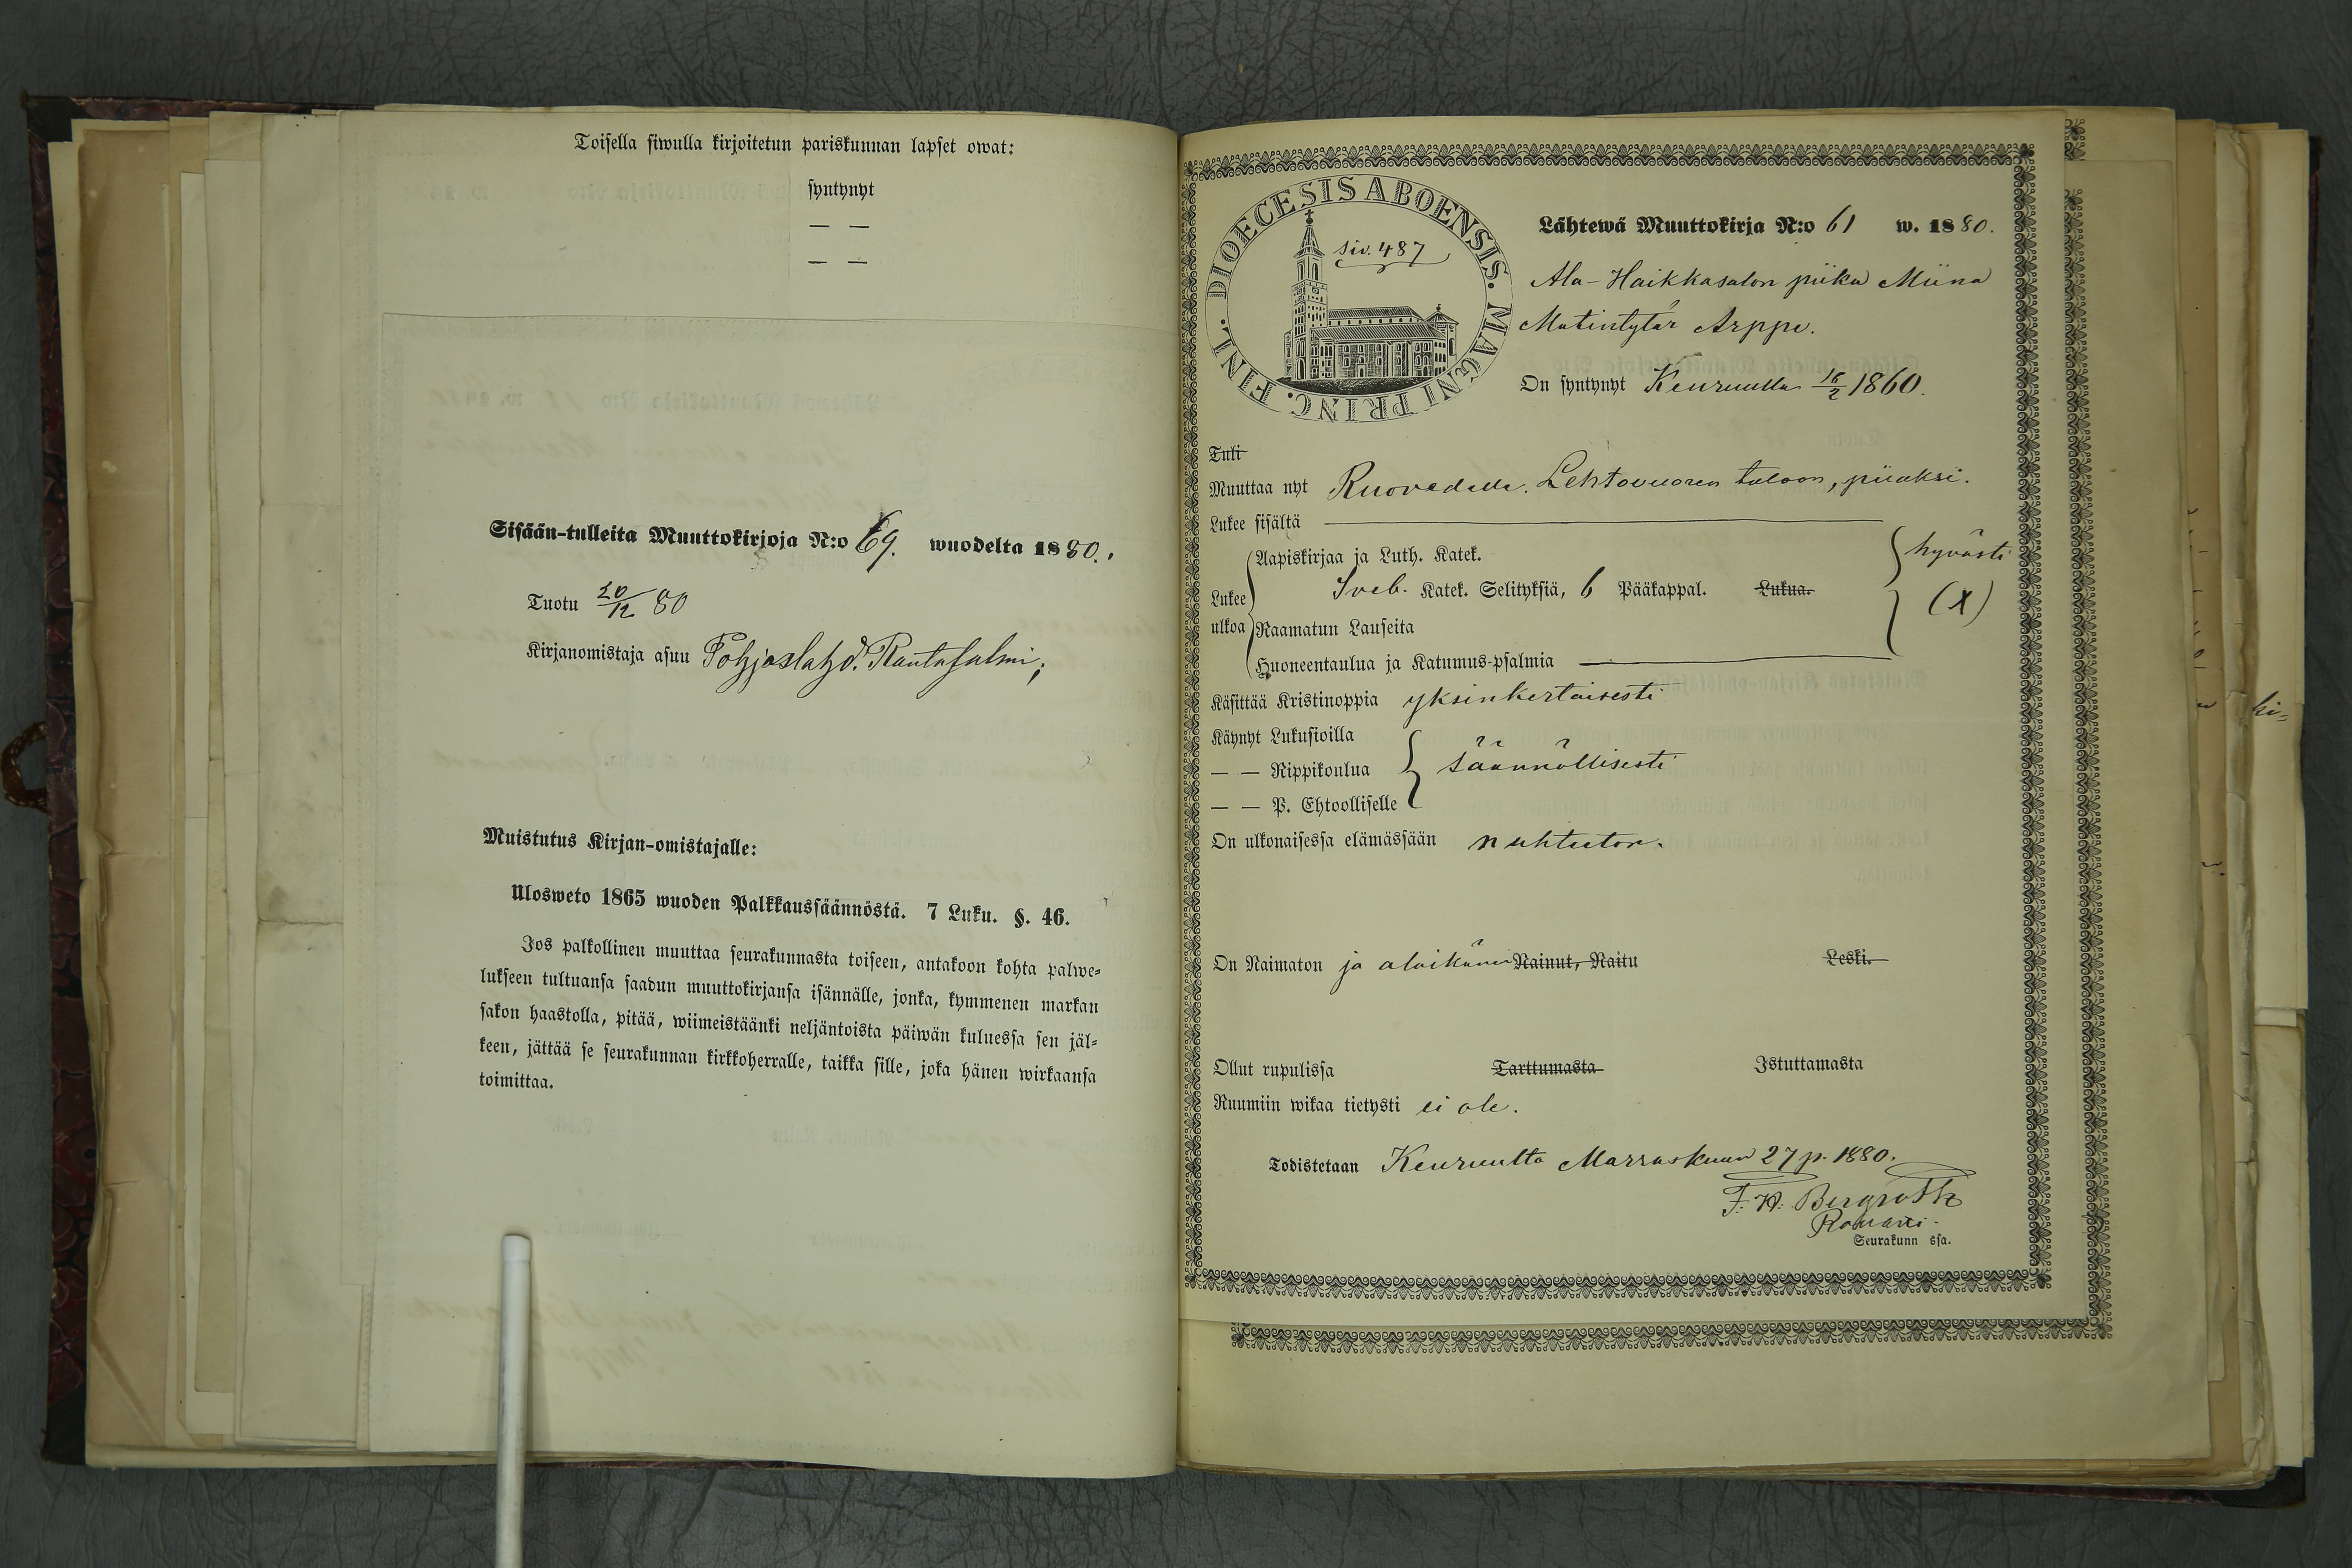 Toisella siwulla kirjoitetun pariskunnan lapset owat:
syntynyt
— —
— —
Sisään-tulleita Muuttokirjoja N:o 69. wuodelta 1880.
Tuotu 20/12 80
Kirjanomistaja asuu Pohjaslahd. Rantasalmi;
Muistutus Kirjan-omistajalle:
Ulosweto 1865 wuoden Palkkaussäännöstä. 7 Luku. §. 46.
Jos palkollinen muuttaa seurakunnasta toiseen, antakoon kohta palwe-
lukseen tultuansa saadun muuttokirjansa isännälle, jonka, kymmenen markan
sakon haastolla, pitää, wiimeistäänki neljäntoista päiwän kuluessa sen jäl-
keen, jättää se seurakunnan kirkkoherralle, taikka sille, joka hänen wirkaansa
toimittaa.
DIOECESIS ABOENSIS. MAGNI PRINC. FINL.
siv. 487
Lähtewä Muuttokirja N:o 61 w. 1880.
Ala-Haikkasalon piika Miina
Matintytär Arppe.
On syntynyt Keuruulla 16/2 1860.
Tuli
Muuttaa nyt Ruovedelle. Lehtovuoren taloon, piiaksi.
Lukee sisältä
Aapiskirjaa ja Luth. Katek. hyvästi
Lukee ulkoa Sveb. Katek. Selityksiä, 6 Pääkappal. Lukua. (X)
Raamatun Lauseita
Huoneentaulua ja Katumus-psalmia
Käsittää Kristinoppia yksinkertaisesti
Käynyt Lukusioilla
— — Rippikoulua säännöllisesti
— — P. Ehtoolliselle
On ulkonaisessa elämässään nuhteeton.
On Naimaton ja alaikäinen Nainut, Naitu Leski.
Ollut rupulissa Tarttumasta Istuttamasta
Ruumiin wikaa tietysti ei ole.
Todistetaan Keuruulta Marraskuun 27 p. 1880.
F. H. Bergroth
Seurakunn ssa.
ki-